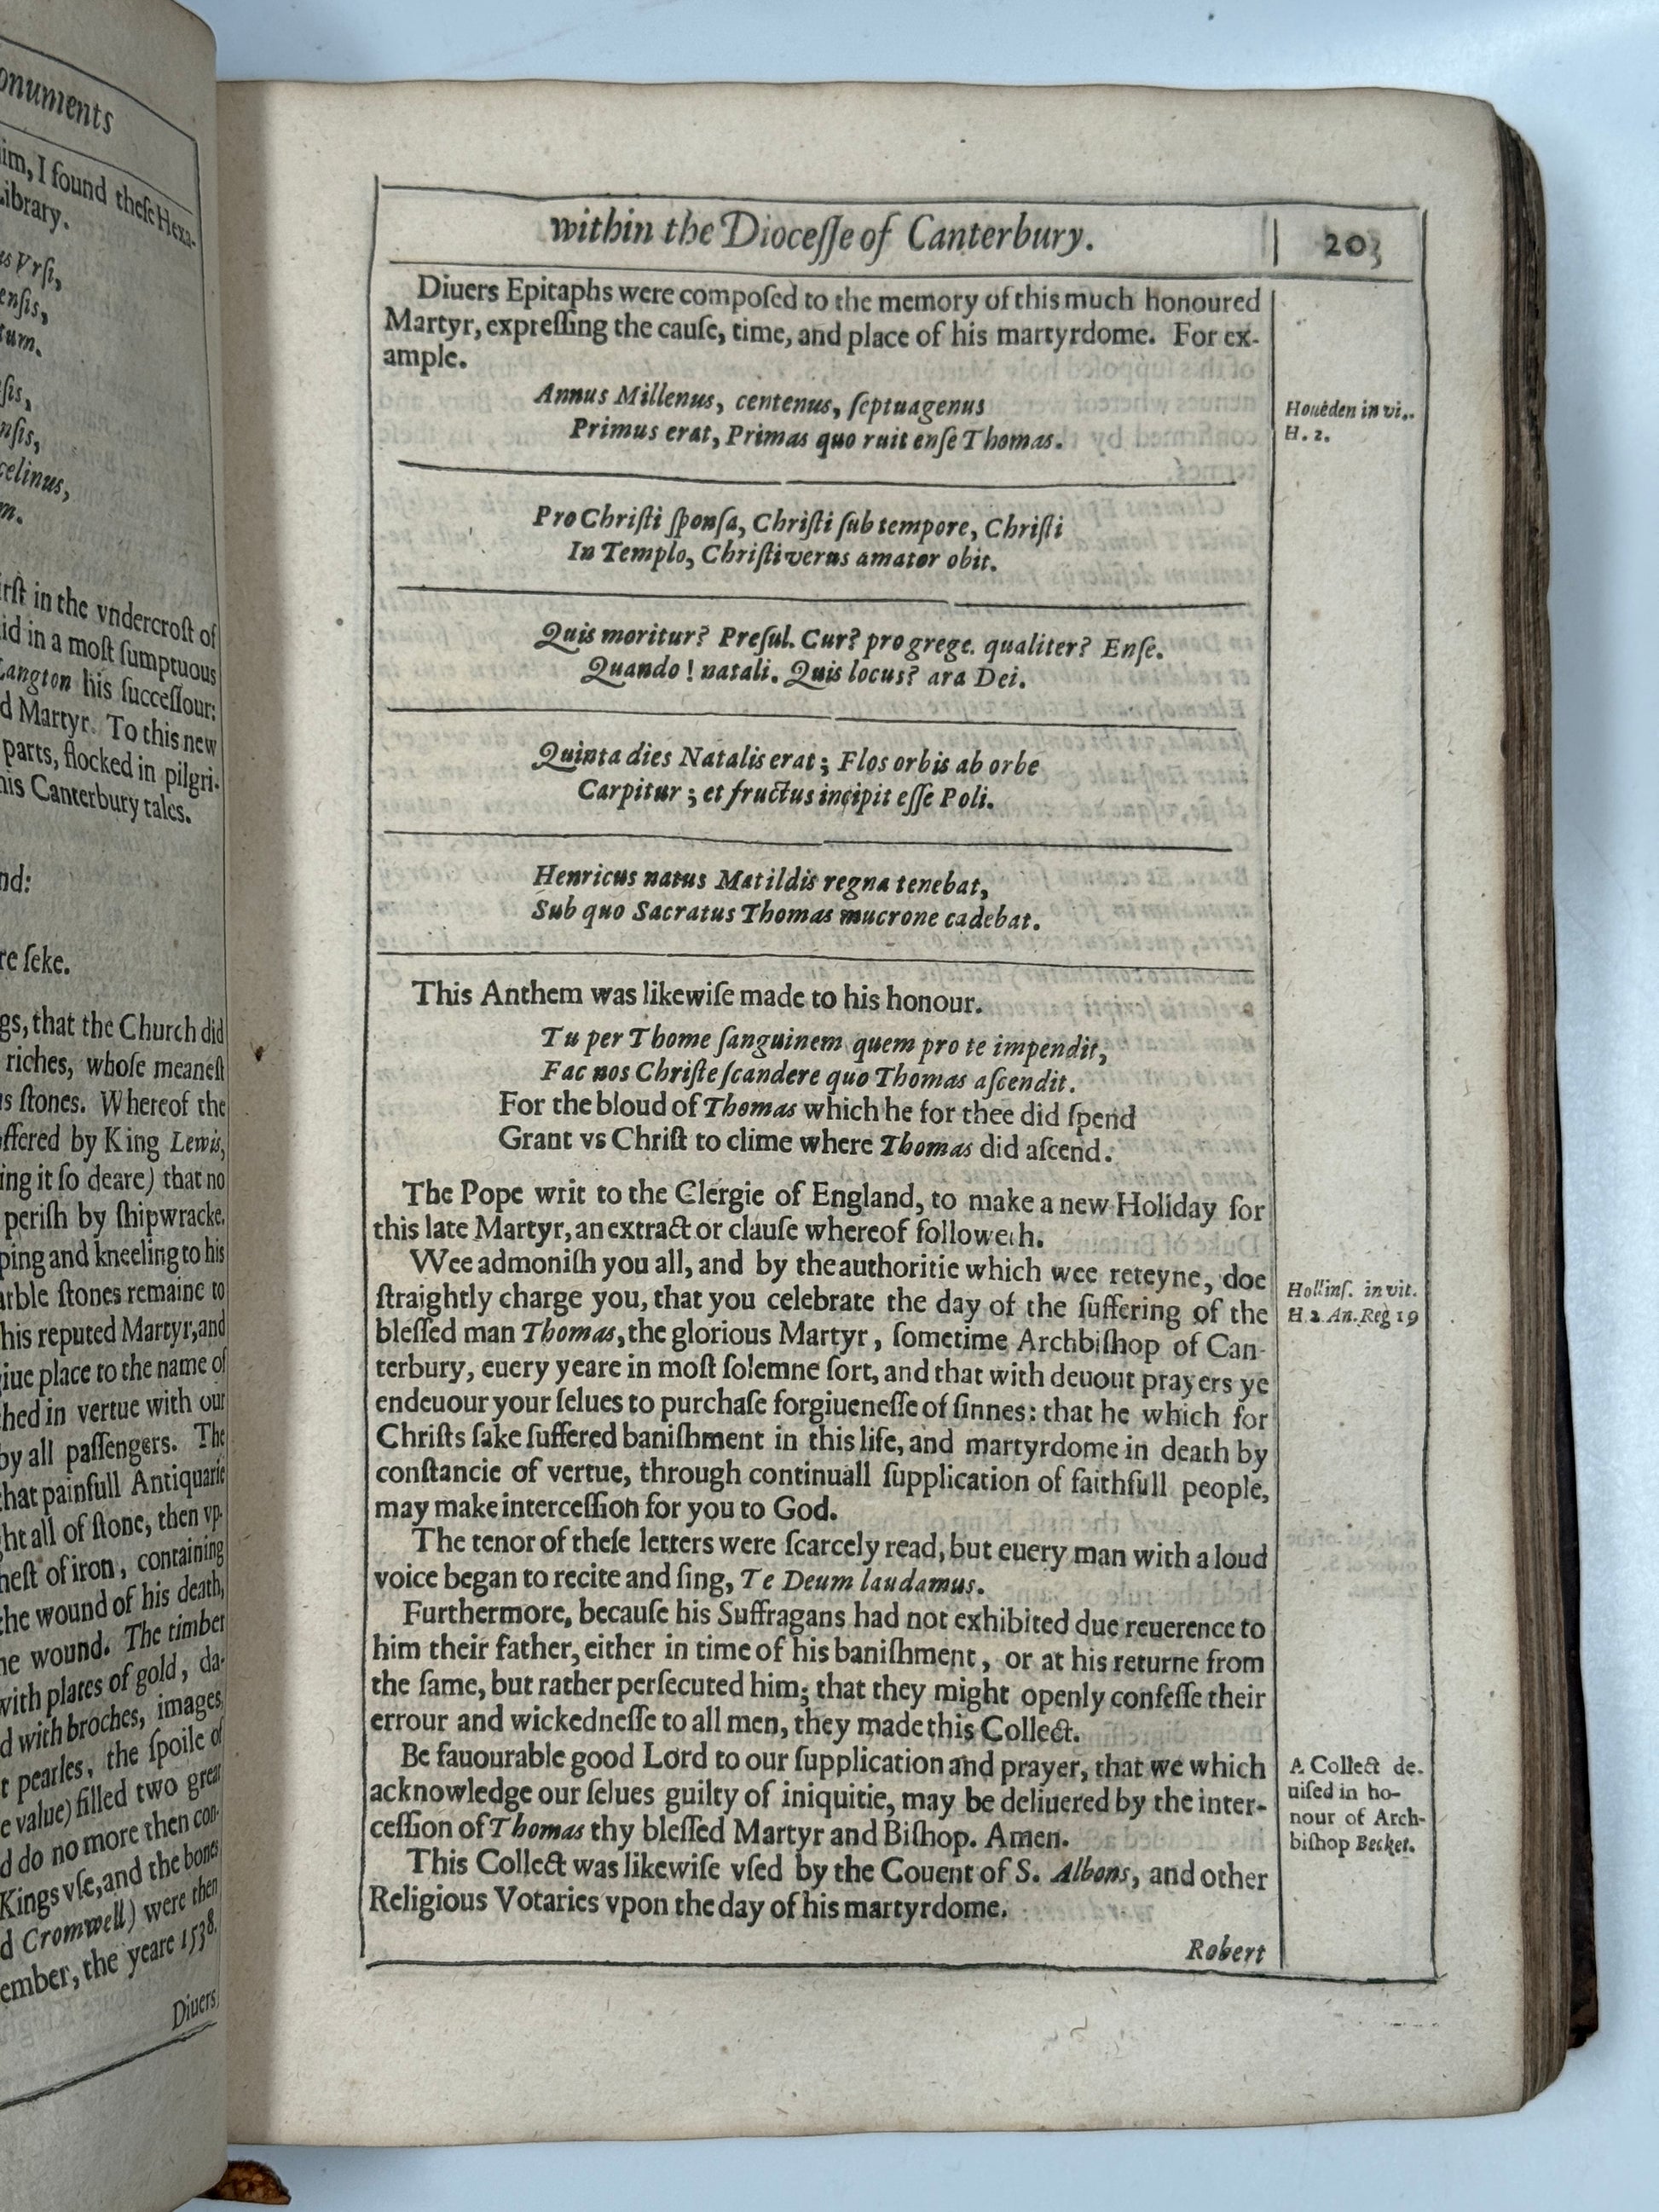 onuments
im, I found theſe Hexa-
Library.
us Vrſi,
enſis,
tum.
ſis,
nſis,
celinus,
m.
irſt in the vndercroft of
id in a moſt ſumptuous
Langton his ſucceſſour:
d Martyr. To this new
parts, flocked in pilgri-
his Canterbury tales.
nd:
re ſeke.
gs, that the Church did
riches, whoſe meaneſt
us ſtones. Whereof the
offered by King Lewis,
ing it ſo deare) that no
periſh by ſhipwracke.
ping and kneeling to his
arble ſtones remaine to
his reputed Martyr, and
giue place to the name of
hed in vertue with our
by all paſſengers. The
that painfull Antiquarie
ght all of ſtone, then vp-
heſt of iron, containing
the wound of his death,
he wound. The timber
with plates of gold, da-
d with broches, images,
t pearles, the ſpoile of
e value) filled two great
d do no more then con-
Kings vſe, and the bones
d Cromwell) were then
ember, the yeare 1538.
Diuers
within the Dioceſſe of Canterbury. 203
Diuers Epitaphs were compoſed to the memory of this much honoured
Martyr, expreſſing the cauſe, time, and place of his martyrdome. For ex-
ample.
Annus Millenus, centenus, ſeptuagenus
Primus erat, Primas quo ruit enſe Thomas.
Houeden in vi..
H. 2.
Pro Chriſti ſponſa, Chriſti ſub tempore, Chriſti
In Templo, Chriſti verus amator obit.
Quis moritur? Preſul. Cur? pro grege. qualiter? Enſe.
Quando! natali. Quis locus? ara Dei.
Quinta dies Natalis erat; Flos orbis ab orbe
Carpitur; et fructus incipit eſſe Poli.
Henricus natus Matildis regna tenebat,
Sub quo Sacratus Thomas mucrone cadebat.
This Anthem was likewiſe made to his honour.
Tu per Thome ſanguinem quem pro te impendit,
Fac nos Chriſte ſcandere quo Thomas aſcendit.
For the bloud of Thomas which he for thee did ſpend
Grant vs Chriſt to clime where Thomas did aſcend.
The Pope writ to the Clergie of England, to make a new Holiday for
this late Martyr, an extract or clauſe whereof followeth.
Wee admoniſh you all, and by the authoritie which wee reteyne, doe
ſtraightly charge you, that you celebrate the day of the ſuffering of the
bleſſed man Thomas, the glorious Martyr, ſometime Archbiſhop of Can-
terbury, euery yeare in moſt ſolemne ſort, and that with deuout prayers ye
endeuour your ſelues to purchaſe forgiueneſſe of ſinnes: that he which for
Chriſts ſake ſuffered baniſhment in this life, and martyrdome in death by
conſtancie of vertue, through continuall ſupplication of faithfull people,
may make interceſſion for you to God.
Hollinſ. in vit.
H 2. An. Reg 19
The tenor of theſe letters were ſcarcely read, but euery man with a loud
voice began to recite and ſing, Te Deum laudamus.
Furthermore, becauſe his Suffragans had not exhibited due reuerence to
him their father, either in time of his baniſhment, or at his returne from
the ſame, but rather perſecuted him; that they might openly confeſſe their
errour and wickedneſſe to all men, they made this Collect.
Be fauourable good Lord to our ſupplication and prayer, that we which
acknowledge our ſelues guilty of iniquitie, may be deliuered by the inter-
ceſſion of Thomas thy bleſſed Martyr and Biſhop. Amen.
A Collect de-
uiſed in ho-
nour of Arch-
biſhop Becket.
This Collect was likewiſe vſed by the Couent of S. Albons, and other
Religious Votaries vpon the day of his martyrdome.
Robert